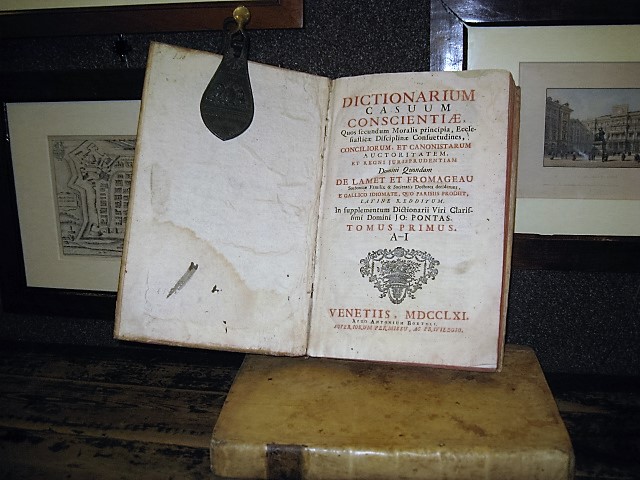 DICTIONARIUM
CASUUM
CONSCIENTIÆ,
Quos secundum Moralis principia, Eccle-
siasticæ Disciplinæ Consuetudines,
CONCILIORUM, ET CANONISTARUM
AUCTORITATEM,
ET REGNI JURISPRUDENTIAM
Domini Quondam
DE LAMET ET FROMAGEAU
Sorbonicæ Familiæ & Societatis Doctores decidebant,
E GALLICO IDIOMATE, QUO PARISIIS PRODIIT,
LATINE REDDITUM.
In supplementum Dictionarii Viri Claris-
simi Domini JO: PONTAS.
TOMUS PRIMUS.
A-I
VENETIIS, MDCCLXI.
APUD ANTONIUM
SUPERIORUM PERMISSU, AC PRIVILEGIO.